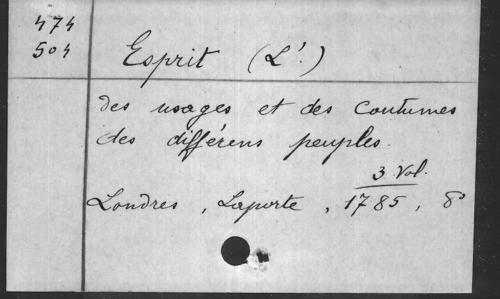 474
504
Esprit (L'.)
des usages et des coutumes
des différens peuples.
3 Vol.
Londres, Laporte, 1785, 8°